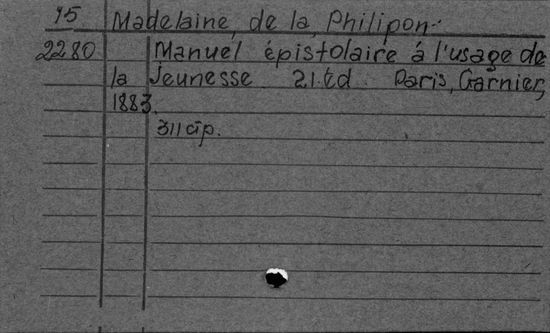 15 Madelaine, de la, Philipon.
2280 Manuel épistolaire á l'usage de
la jeunesse 21.éd. Paris, Garnier,
1883.
311 čip.